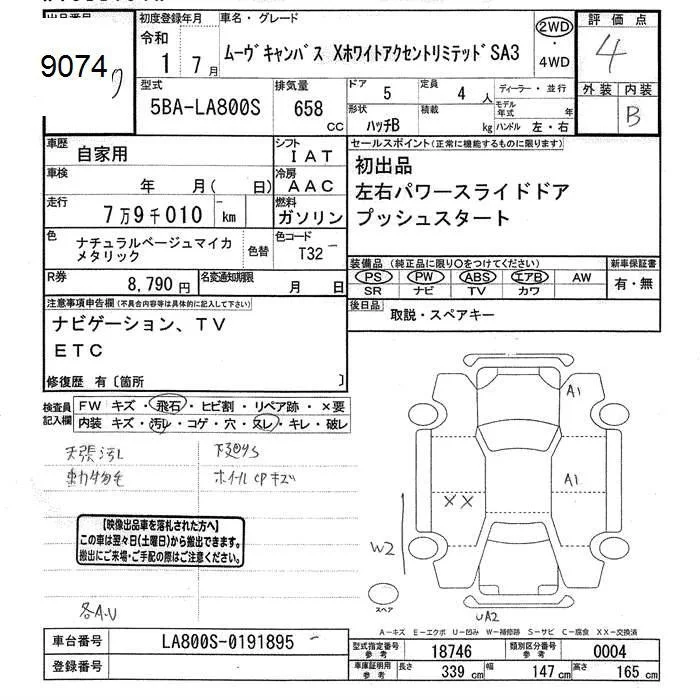 9074
初度登録年月 車名・グレード 評価点
令和 1 7月 ムーヴキャンバス XホワイトアクセントリミテッドSA3 2WD・4WD 4
型式 排気量 ドア 5 定員 4人 ディーラー・並行 外装 内装
5BA-LA800S 658 cc 形状 ハッチB 積載 kg モデル年式 年 ハンドル 左・右 B
車歴 自家用 シフト IAT セールスポイント(正常に機能するものに限ります)
車検 年 月( 日) 冷房 AAC 初出品
走行 7万9千010 km 燃料 ガソリン 左右パワースライドドア
プッシュスタート
色 ナチュラルベージュマイカメタリック 色替 色コード T32
装備品 (純正品に限り○をつけてください) 新車保証書
PS PW ABS エアB AW 有・無
SR ナビ TV カワ
R券 8,790円 名変通知期限 月 日
後日品 取説・スペアキー
注意事項申告欄(不具合内容等は具体的に記入して下さい)
ナビゲーション、TV
ETC
修復歴 有〔箇所 〕
検査員記入欄 FW キズ・飛石・ヒビ割・リペア跡・×要
内装 キズ・汚レ・コゲ・穴・ヌレ・キレ・破レ
天張汚レ 下廻サS
動物毛 ホイルCPキズ
A1
A1
XX
W2
スペア
UA2
【映像出品車を落札された方へ】
この車は翌々日(土曜日)から搬出できます。
搬出にご来場・ご手配の際はご注意ください。
各A.U
A-キズ E-エクボ U-凹み W-補修跡 S-サビ C-腐食 XX-交換済
車台番号 LA800S-0191895
型式指定番号 参考 18746 類別区分番号 参考 0004
登録番号
車庫証明用 参考 長さ 339 cm 幅 147 cm 高さ 165 cm